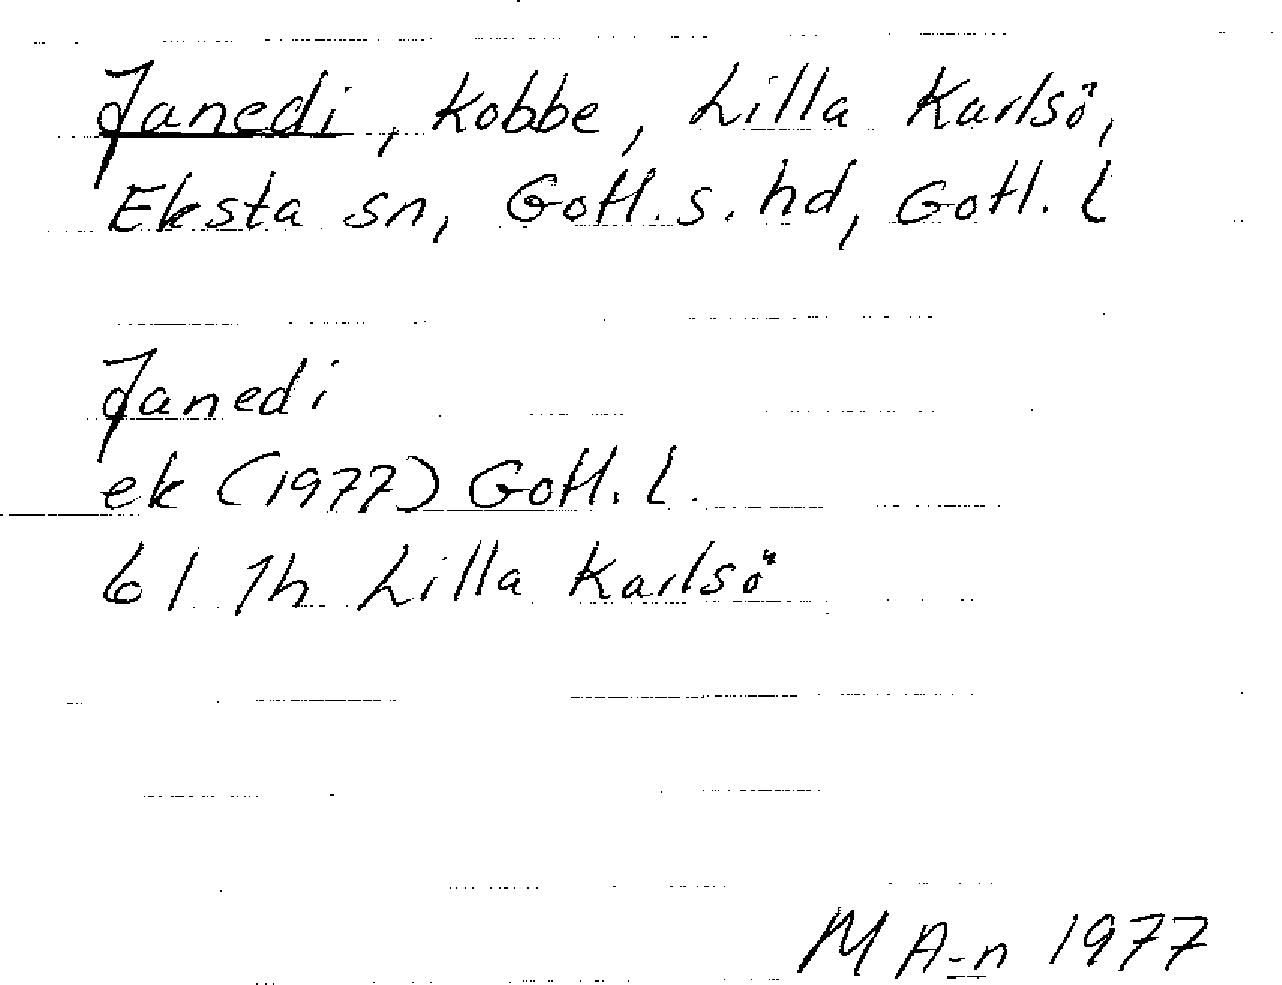 Janedi, kobbe, Lilla Karlsö,
Eksta sn, Gotl. s. hd, Gotl. l
Janedi
ek (1977) Gotl. l.
61 7h Lilla Karlsö
M A-n 1977